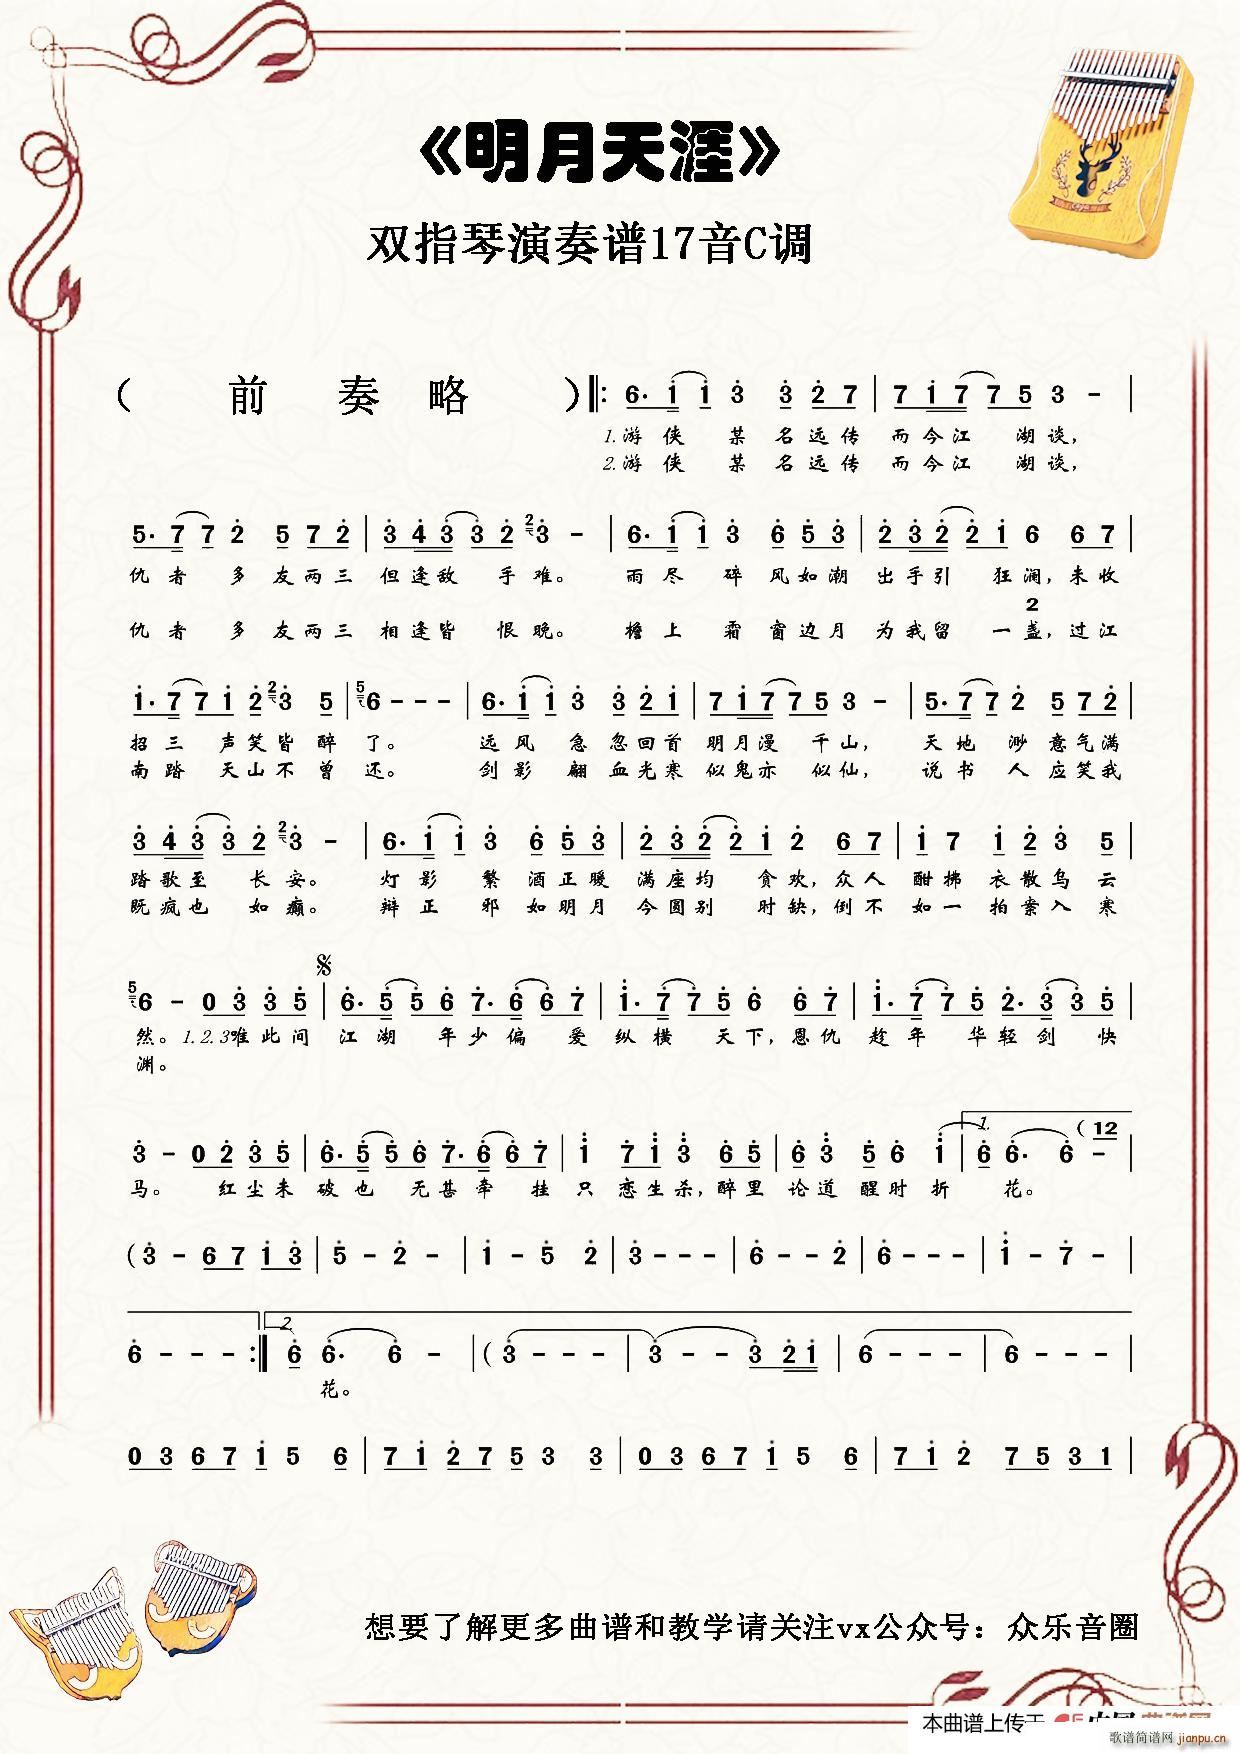 《明月天涯》
双指琴演奏谱17音C调
（ 前 奏 略 ） 6· 1 1 3 3 2 7 | 7 1 7 7 5 3 - |
1.游 侠 某 名 远 传 而 今 江 湖 谈，
2.游 侠 某 名 远 传 而 今 江 湖 谈，
5· 7 7 2 5 7 2 | 3 4 3 3 2 2 3 - | 6· 1 1 3 6 5 3 | 2 3 2 2 1 6 6 7 |
仇 者 多 友 两 三 但 逢 敌 手 难。 雨 尽 碎 风 如 潮 出 手 引 狂 澜，未 收
2
仇 者 多 友 两 三 相 逢 皆 恨 晚。 檐 上 霜 窗 边 月 为 我 留 一 盏，过 江
1· 7 7 1 2 2 3 5 | 5 6 - - - | 6· 1 1 3 3 2 1 | 7 1 7 7 5 3 - | 5· 7 7 2 5 7 2 |
招 三 声 笑 皆 醉 了。 远 风 急 忽 回 首 明 月 漫 千 山， 天 地 渺 意 气 满
南 踏 天 山 不 曾 还。 剑 影 翩 血 光 寒 似 鬼 亦 似 仙， 说 书 人 应 笑 我
3 4 3 3 2 2 3 - | 6· 1 1 3 6 5 3 | 2 3 2 2 1 2 6 7 | 1 7 1 2 3 5 |
踏 歌 至 长 安。 灯 影 繁 酒 正 暖 满 座 均 贪 欢，众 人 酣 拂 衣 散 乌 云
既 疯 也 如 癫。 辩 正 邪 如 明 月 今 圆 别 时 缺，倒 不 如 一 拍 案 入 寒
5 6 - 0 3 3 5 | 6· 5 5 6 7· 6 6 7 | 1· 7 7 5 6 6 7 | 1· 7 7 5 2· 3 3 5 |
然。1.2.3唯 此 间 江 湖 年 少 偏 爱 纵 横 天 下，恩 仇 趁 年 华 轻 剑 快
渊。
1.
3 - 0 2 3 5 | 6· 5 5 6 7· 6 6 7 | 1 7 1 3 6 5 | 6 3 5 6 1 | 6 6· 6 - （12
马。 红 尘 未 破 也 无 甚 牵 挂 只 恋 生 杀，醉 里 论 道 醒 时 折 花。
（3 - 6 7 1 3 | 5 - 2 - | 1 - 5 2 | 3 - - - | 6 - - 2 | 6 - - - | 1 - 7 - |
2.
6 - - - :| 6 6· 6 - |（3 - - - | 3 - - 3 2 1 | 6 - - - | 6 - - - |
花。
0 3 6 7 1 5 6 | 7 1 2 7 5 3 3 | 0 3 6 7 1 5 6 | 7 1 2 7 5 3 1 |
想要了解更多曲谱和教学请关注vx公众号：众乐音圈
本曲谱上传于
歌谱简谱网 jianpu.cn